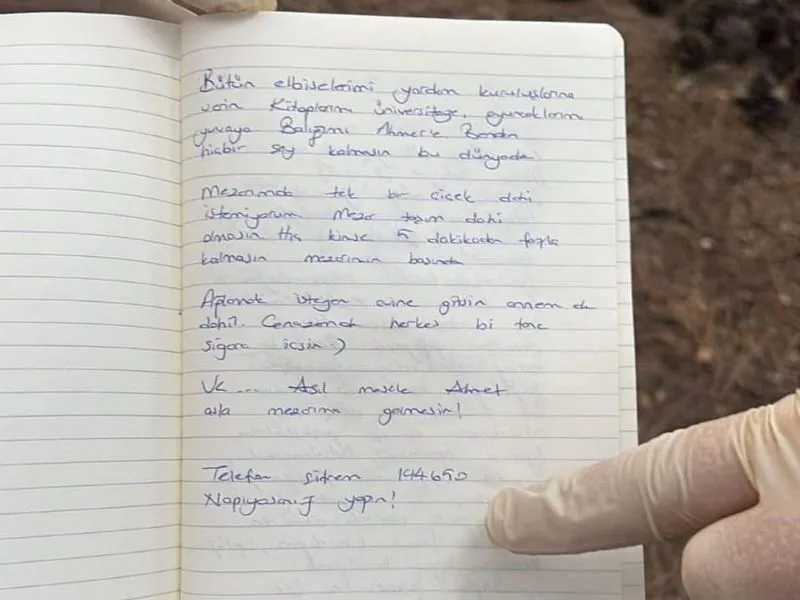 Bütün elbiselerimi yardım kuruluşlarına
verin Kitaplarımı üniversiteye, oyuncaklarımı
yuvaya Balığımı Ahmet'e Benden
hiçbir şey kalmasın bu dünyada
Mezarımda tek bir çiçek dahi
istemiyorum Mezar taşım dahi
olmasın Hiç kimse 5 dakikadan fazla
kalmasın mezarımın başında
Ağlamak isteyen evine gitsin annem de
dahil. Cenazemde herkes bi tane
sigara içsin :)
Ve... Asıl mesele Ahmet
asla mezarıma gelmesin!
Telefon şifrem 194650
Napıyosanız yapın!